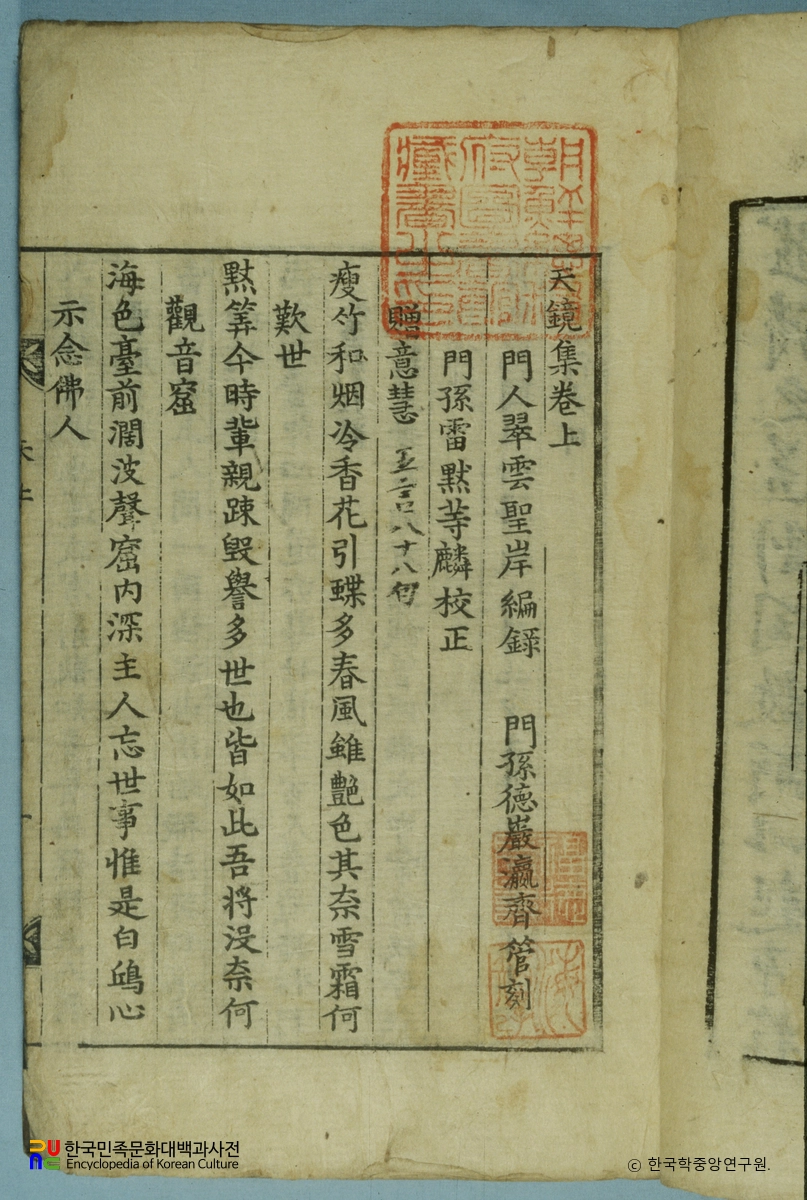 天鏡集卷上
門人翠雲聖岸編錄 門孫德巖瀛齊管刻
門孫雷黙等麟校正
贈意慧 五言八十八句
瘦竹和烟冷香花引蝶多春風雖艶色其奈雪霜何
歎世
黙筭今時輩親踈毁譽多世也皆如此吾將没奈何
觀音窟
海色臺前濶波聲窟內深主人忘世事惟是白鷗心
示念佛人
한국민족문화대백과사전
Encyclopedia of Korean Culture
ⓒ 한국학중앙연구원.